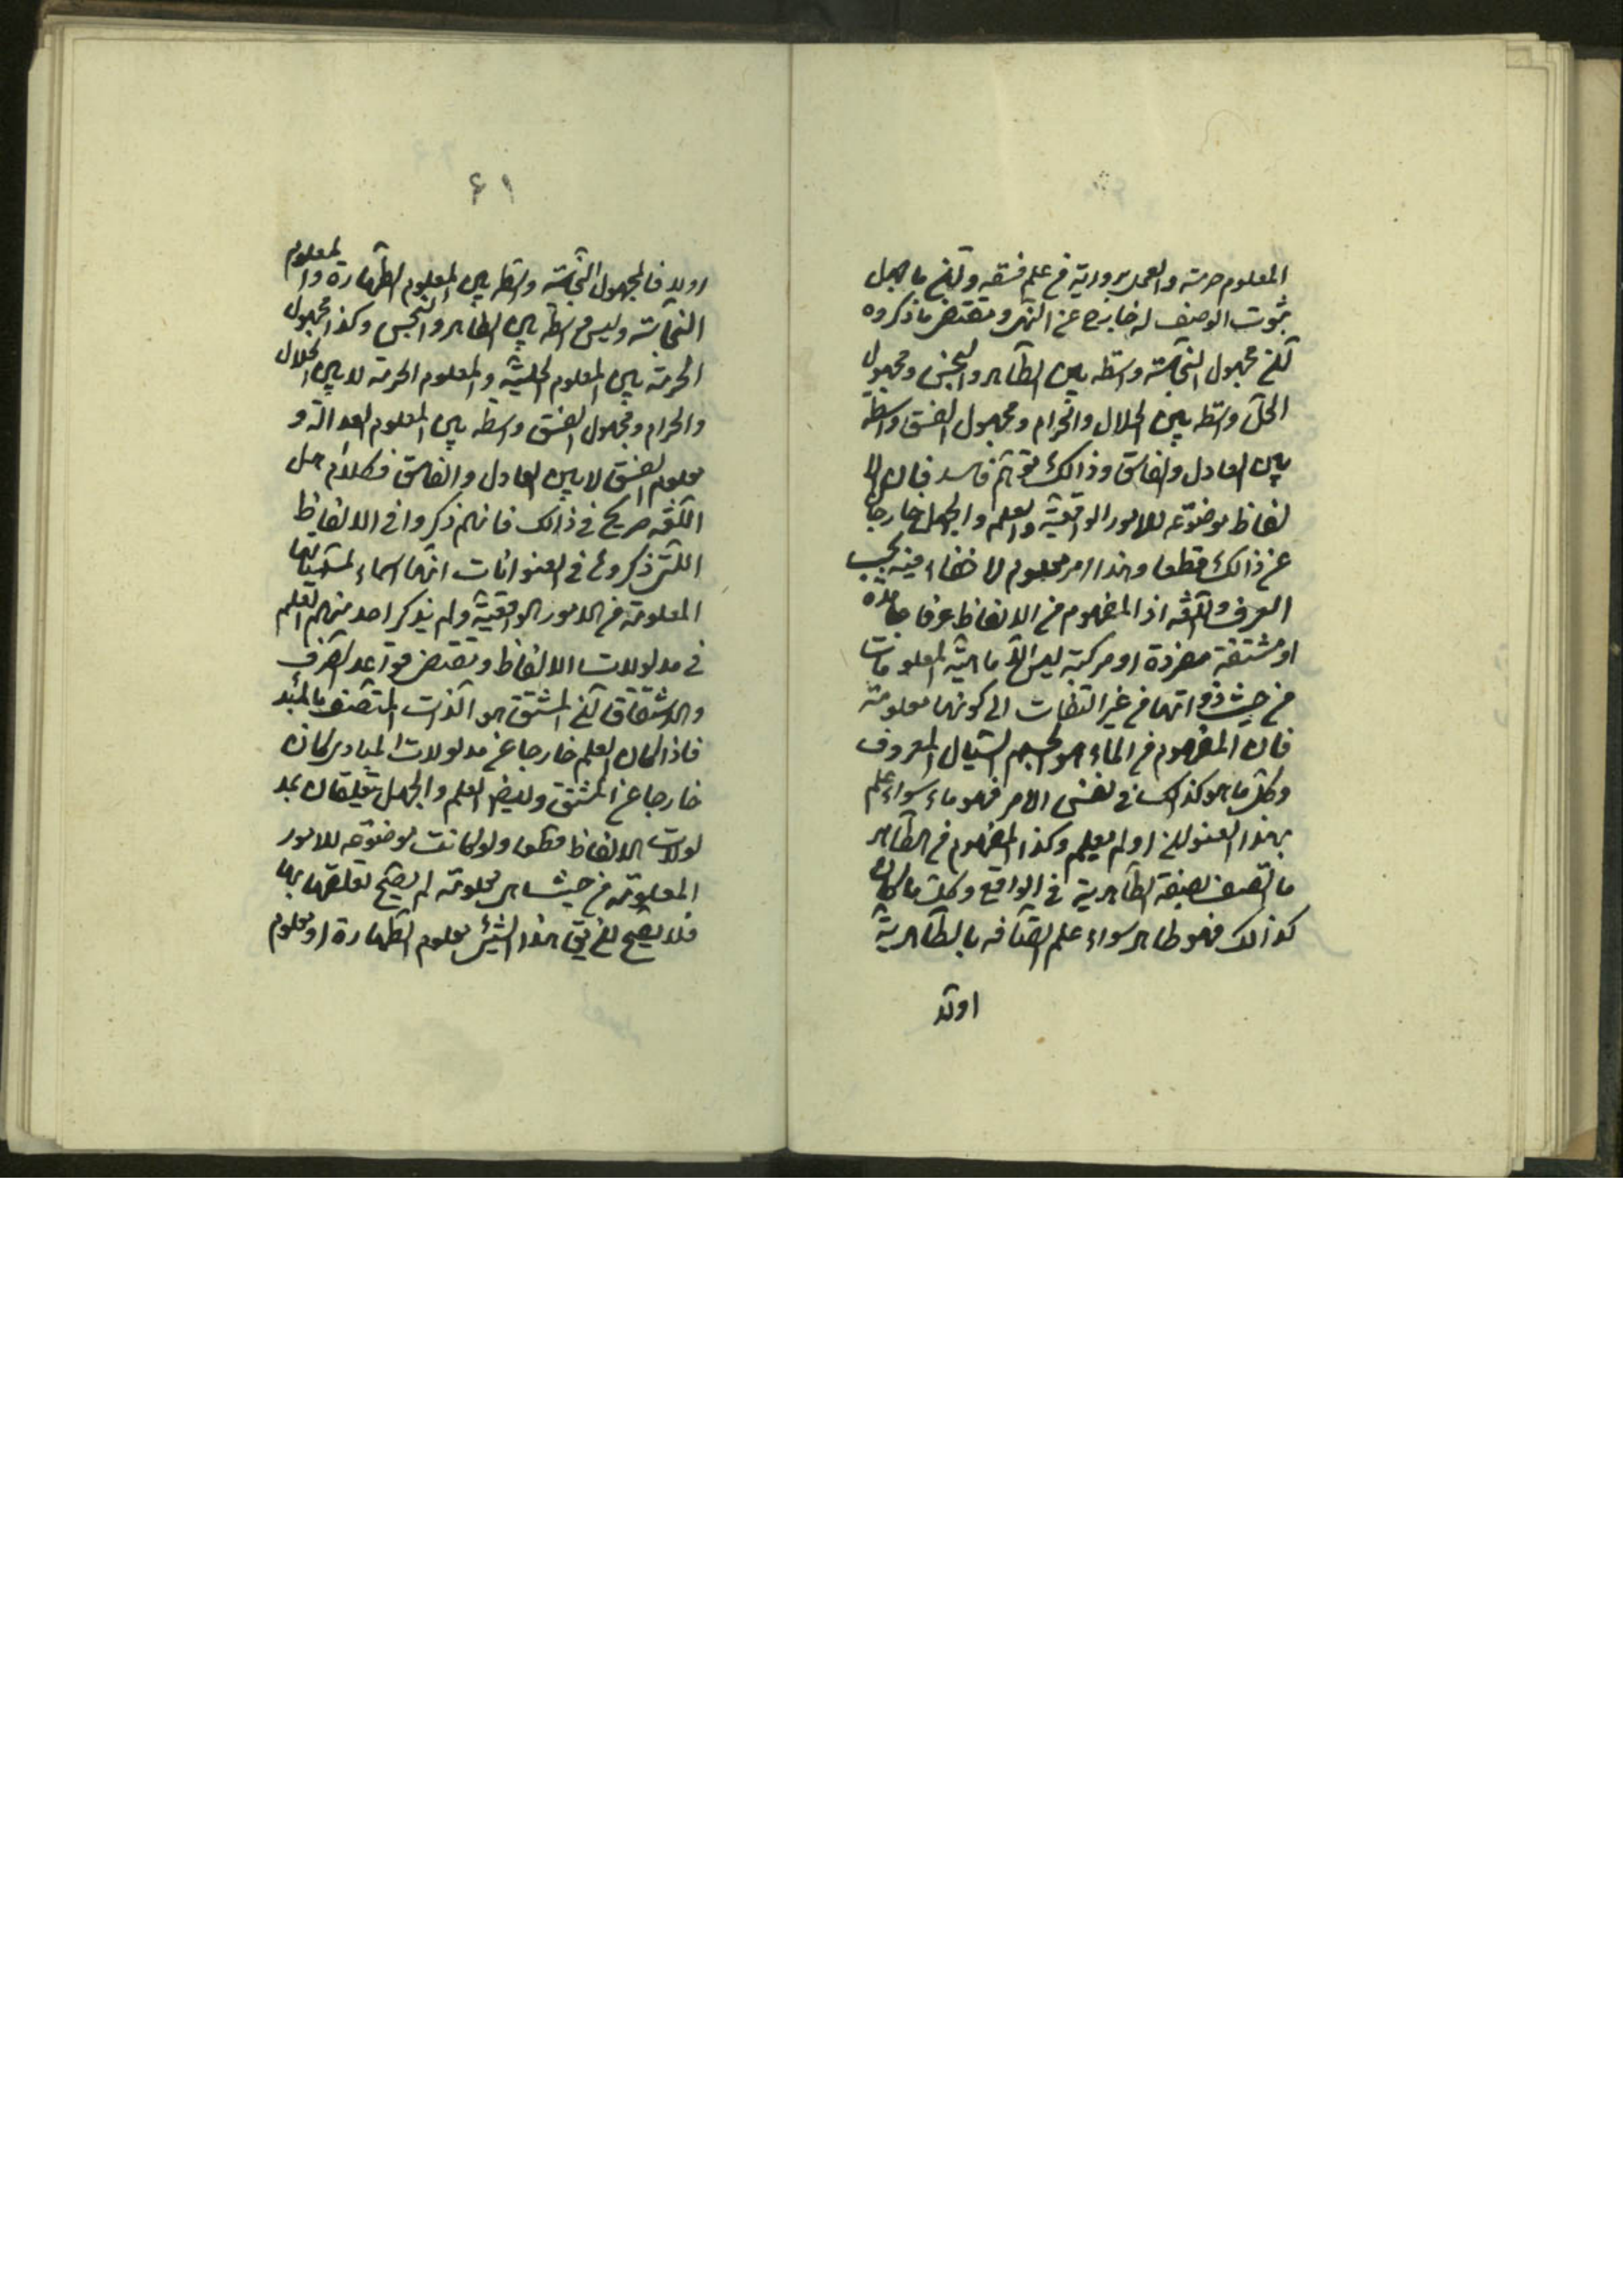 المعلوم حرمته والعمل بروايته من علم فسقه وان ما جهل
ثبوت الوصف له خارج عن النهى ومقتضى ما ذكروه
ان مجهول النجاسة واسطه بين الطاهر والنجس ومجهول
الحل واسطه بين الحلال والحرام ومجهول الفسق واسطه
بين العادل والفاسق وذالك توهم فاسد فان الا
لفاظ موضوعه للامور الواقعيّة والعلم والجهل خارجا
عن ذالك قطعا وهذا امر معلوم لا خفاء فيه بحسب
العرف واللغه اذ المفهوم من الالفاظ عرفا جامدة
او مشتقة مفردة او مركبة ليس الّا ماهيّة المعلومات
من حيث ذواتها من غير التفات الى كونها معلومة
فان المفهوم من الماء هو الجسم السّيال المعروف
وكل ما هو كذالك فى نفس الامر فهو ماء سواء علم
بهذا العنوان او لم يعلم وكذا المفهوم من الطاهر
ما اتصف بصفة الطاهرية فى الواقع وكل ما كان
كذالك فهو طاهر سواء علم اتصافه بالطاهرية
اولا
٤١
اولا فالمجهول النجاسة واسطه بين المعلوم الطهارة والمعلوم
النجاسة وليس واسطه بين الطاهر والنجس وكذا مجهول
الحرمة بين المعلوم الحليّة والمعلوم الحرمة لا بين الحلال
والحرام ومجهول الفسق واسطه بين المعلوم العدالة و
معلوم الفسق لا بين العادل والفاسق فكلام اهل
اللغه صريح فى ذالك فانهم ذكروا فى الالفاظ
اللتى ذكروها فى العنوانات انها اسماء لمسمياتها
المعلومة من الامور الواقعيّة ولم يذكر احد منهم العلم
فى مدلولات الالفاظ ومقتضى قواعد الصرف
والاشتقاق ان المشتق هو الذات المتصف بالمبدء
فاذا كان العلم خارجا عن مدلولات المبادى كان
خارجا عن المشتق وايضا العلم والجهل يتعلقان بمد
لولات الالفاظ قطعا ولو كانت موضوعه للامور
المعلومة من حيث هى معلومة لم يصح تعلقهما بها
فلا يصح ان يق هذا الشئ معلوم الطهارة او معلوم